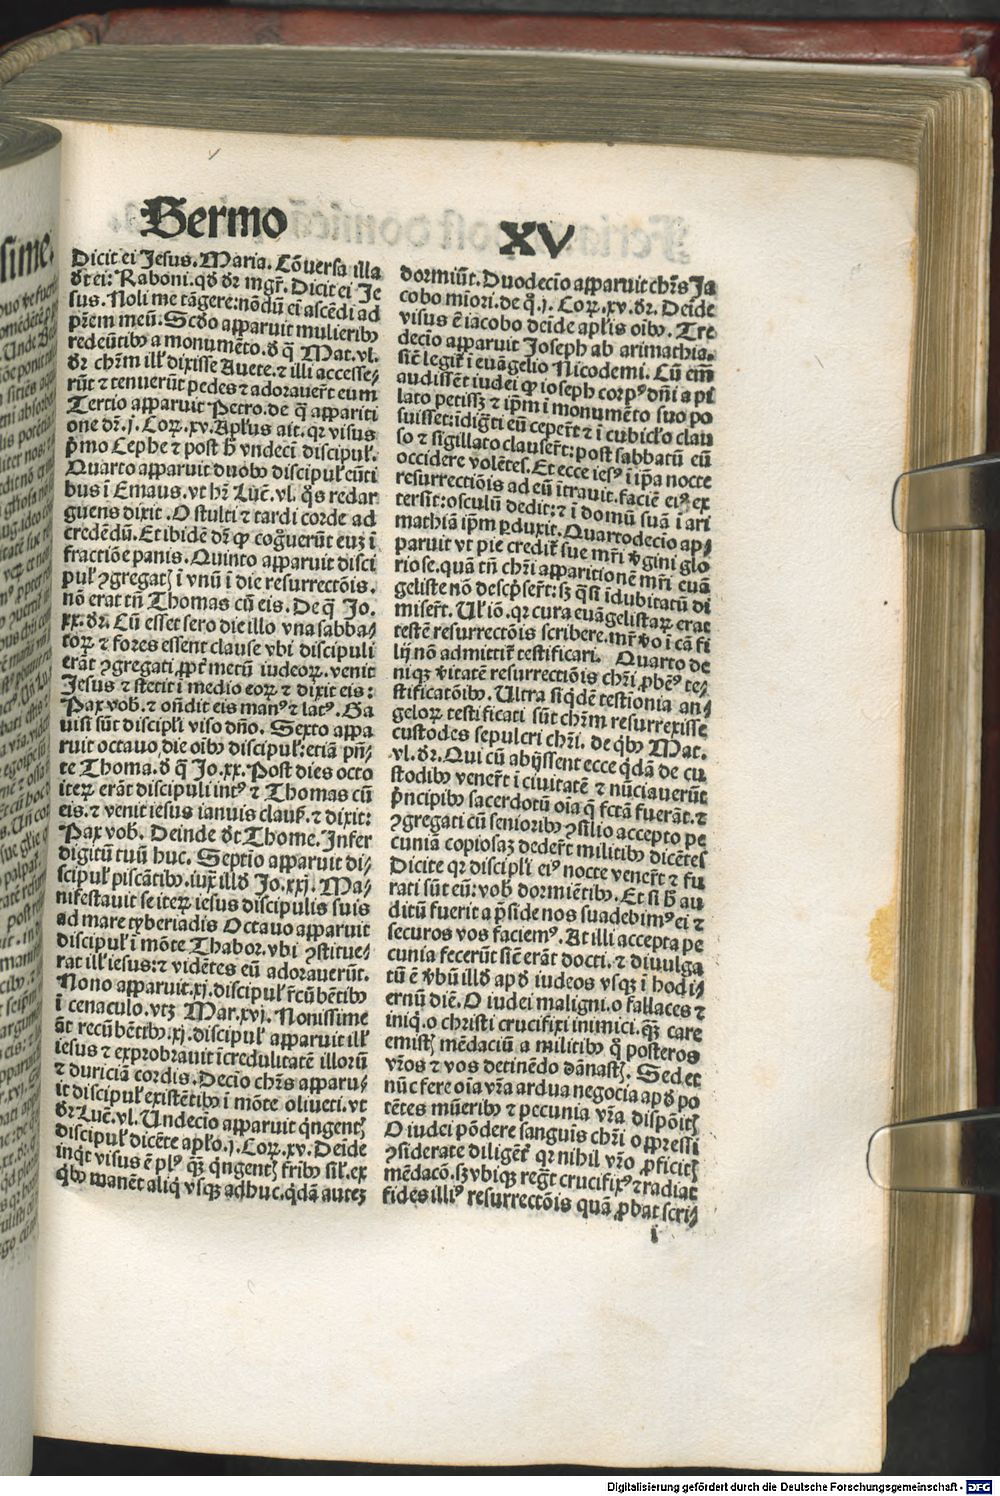 Sermo XV
Dicit ei Jesus. Maria. Cōversa illa
ꝺt ei: Raboni. qꝺ ꝺr mgr̄. Dicit ei Je
sus. Noli me tāgere: nōdū eī ascēdi ad
pr̄em meū. Scꝺo apparuit mulierib⁹
redeūtib⁹ a monumēto. ꝺ q̄ Mat. vl.
ꝺr chr̄m ill' dixisse Auete. ⁊ illi accesse-
rūt ⁊ tenuerūt pedes ⁊ adorauer̄t eum
Tertio apparuit Petro. de q̄ appariti
one dr̄. j. Coꝝ. xv. Aplus ait. qr visus
p̄mo Cephe ⁊ post h̄ vndecī discipul'.
Quarto apparuit duob⁹ discipul' eūti
bus ī Emaus. vt hr̄ Luc̄. vl. q̊s redar
guens dixit. O stulti ⁊ tardi corde ad
credēdū. Et ibidē dr̄ ꝙ cog̊uerūt euꝫ ī
fractiōe panis. Quinto apparuit disci
pul' ꝯgregatꝭ ī vnū ī die resurrectōis.
nō erat tn̄ Thomas cū eis. De q̄ Jo.
xx. ꝺr. Cū esset sero die illo vna sabba-
toꝝ ⁊ fores essent clause vbi discipuli
erāt ꝯgregati, ꝓpt̄ metū iudeoꝝ. venit
Jesus ⁊ stetit ī medio eoꝝ ⁊ dixit eis:
Pax vob. ⁊ on̄dit eis man⁹ ⁊ lat⁹. Ga
uisi sūt discipli viso dn̄o. Sexto appa
ruit octauo die oīb⁹ discipul': etiā pn̄-
te Thoma. ꝺ q̄ Jo. xx. Post dies octo
iteꝝ erāt discipuli int⁹ ⁊ Thomas cū
eis. ⁊ venit iesus ianuis clauꝭ. ⁊ dixit:
Pax vob. Deinde ꝺt Thome. Infer
digitū tuū huc. Septīo apparuit di-
scipul' piscātib⁹. iux̄ illꝺ Jo. xxj. Ma-
nifestauit se iteꝝ iesus discipulis suis
ad mare tyberiadis Octauo apparuit
discipul' ī mōte Thabor. vbi ꝯstitue-
rat ill' iesus: ⁊ vidētes eū adorauerūt.
Nono apparuit. xj. discipul' r̄cūbētib⁹
ī cenaculo. vtꝫ Mar. xvj. Nouissime
āt recūbētib⁹. xj. discipul' apparuit ill'
iesus ⁊ exprobrauit īcredulitatē illorū
⁊ duriciā cordis. Decīo chr̄s apparu-
it discipul' existētib⁹ ī mōte oliueti. vt
ꝺr Luc̄. vl. Undecīo apparuit qngentꝭ
discipul' dicēte aplo. j. Coꝝ. xv. Deīde
inqt visus ē pl⁹ qꝫ qngentꝭ frib⁹ sil'. ex
qb⁹ manēt aliq vsqꝫ adhuc. qdā auteꝫ
dormiūt. Duodecīo apparuit chr̄s Ja
cobo miori. de q̄. j. Coꝝ. xv. ꝺr. Deīde
visus ē iacobo deīde aplis oīb⁹. Tre
decīo apparuit Joseph ab arimathia.
sic̄ legit̄ ī euāgelio Nicodemi. Cū em̄
audissēt iudei ꝙ ioseph corp⁹ dn̄i a pi
lato petissꝫ ⁊ ip̄m ī monumēto suo po
suisset: īdigti eū ceper̄t ⁊ ī cubic̄lo clau
so ⁊ sigillato clauser̄t: post sabbatū eū
occidere volētes. Et ecce ies⁹ ī ip̄a nocte
resurrectiōis ad eū ītrauit. faciē ei⁹ ex
tersit: osculū dedit: ⁊ ī domū suā ī ari
mathiā ip̄m ꝑduxit. Quartodecīo ap-
paruit vt pie credit̄ sue mr̄i v̄gini glo
riose. quā tn̄ chr̄i apparitionē mr̄i euā
geliste nō descp̄ser̄t: sꝫ qsi īdubitatū di
miser̄t. Ul' iō. qr cura euāgelistaꝝ erat
testē resurrectōis scribere. mr̄ v̊o ī cā fi
lij nō admittit̄ testificari. Quarto de
niqꝫ v̄itatē resurrectiōis chr̄i ꝓbēt te-
stificatōib⁹. Ultra siqdē testīonia an-
geloꝝ testificati sūt chr̄m resurrexisse
custodes sepulcri chr̄i. de qb⁹ Mat.
vl. ꝺr. Qui cū abijssent ecce qdā de cu
stodib⁹ vener̄t ī ciuitatē ⁊ nūciauerūt
p̄ncipib⁹ sacerdotū oīa q̄ fctā fuerāt. ⁊
ꝯgregati cū seniorib⁹ ꝯsilio accepto pe
cuniā copiosaꝫ deder̄t militib⁹ dicētes
Dicite qr discipl'i ei⁹ nocte vener̄t ⁊ fu
rati sūt eū: vob dormiētib⁹. Et si h̄ au
ditū fuerit a p̄side nos suadebim⁹ ei ⁊
securos vos faciem⁹. At illi accepta pe
cunia fecerūt sic̄ erāt docti. ⁊ diuulga
tū ē v̄bū illꝺ apꝺ iudeos vsqꝫ ī hodi-
ernū diē. O iudei maligni. o fallaces ⁊
iniq. o christi crucifixi inimici. qꝫ care
emistꝭ mēdaciū a militib⁹ q̄ posteros
vr̄os ⁊ vos detinēdo dānastꝭ. Sed et
nūc fere oīa vr̄a ardua negocia apꝺ po
tētes mūerib⁹ ⁊ pecunia vr̄a dispōitꝭ
O iudei pōdere sanguis chr̄i oppressi
ꝯsiderate diligēt̄ qr nihil vr̄o ꝓficitꝭ
mēdacō. sꝫ vbiqꝫ reg̊t crucifix⁹ ⁊ radiat
fides illi⁹ resurrectōis quā ꝓbat scri-
i
Digitalisierung gefördert durch die Deutsche Forschungsgemeinschaft - DFG